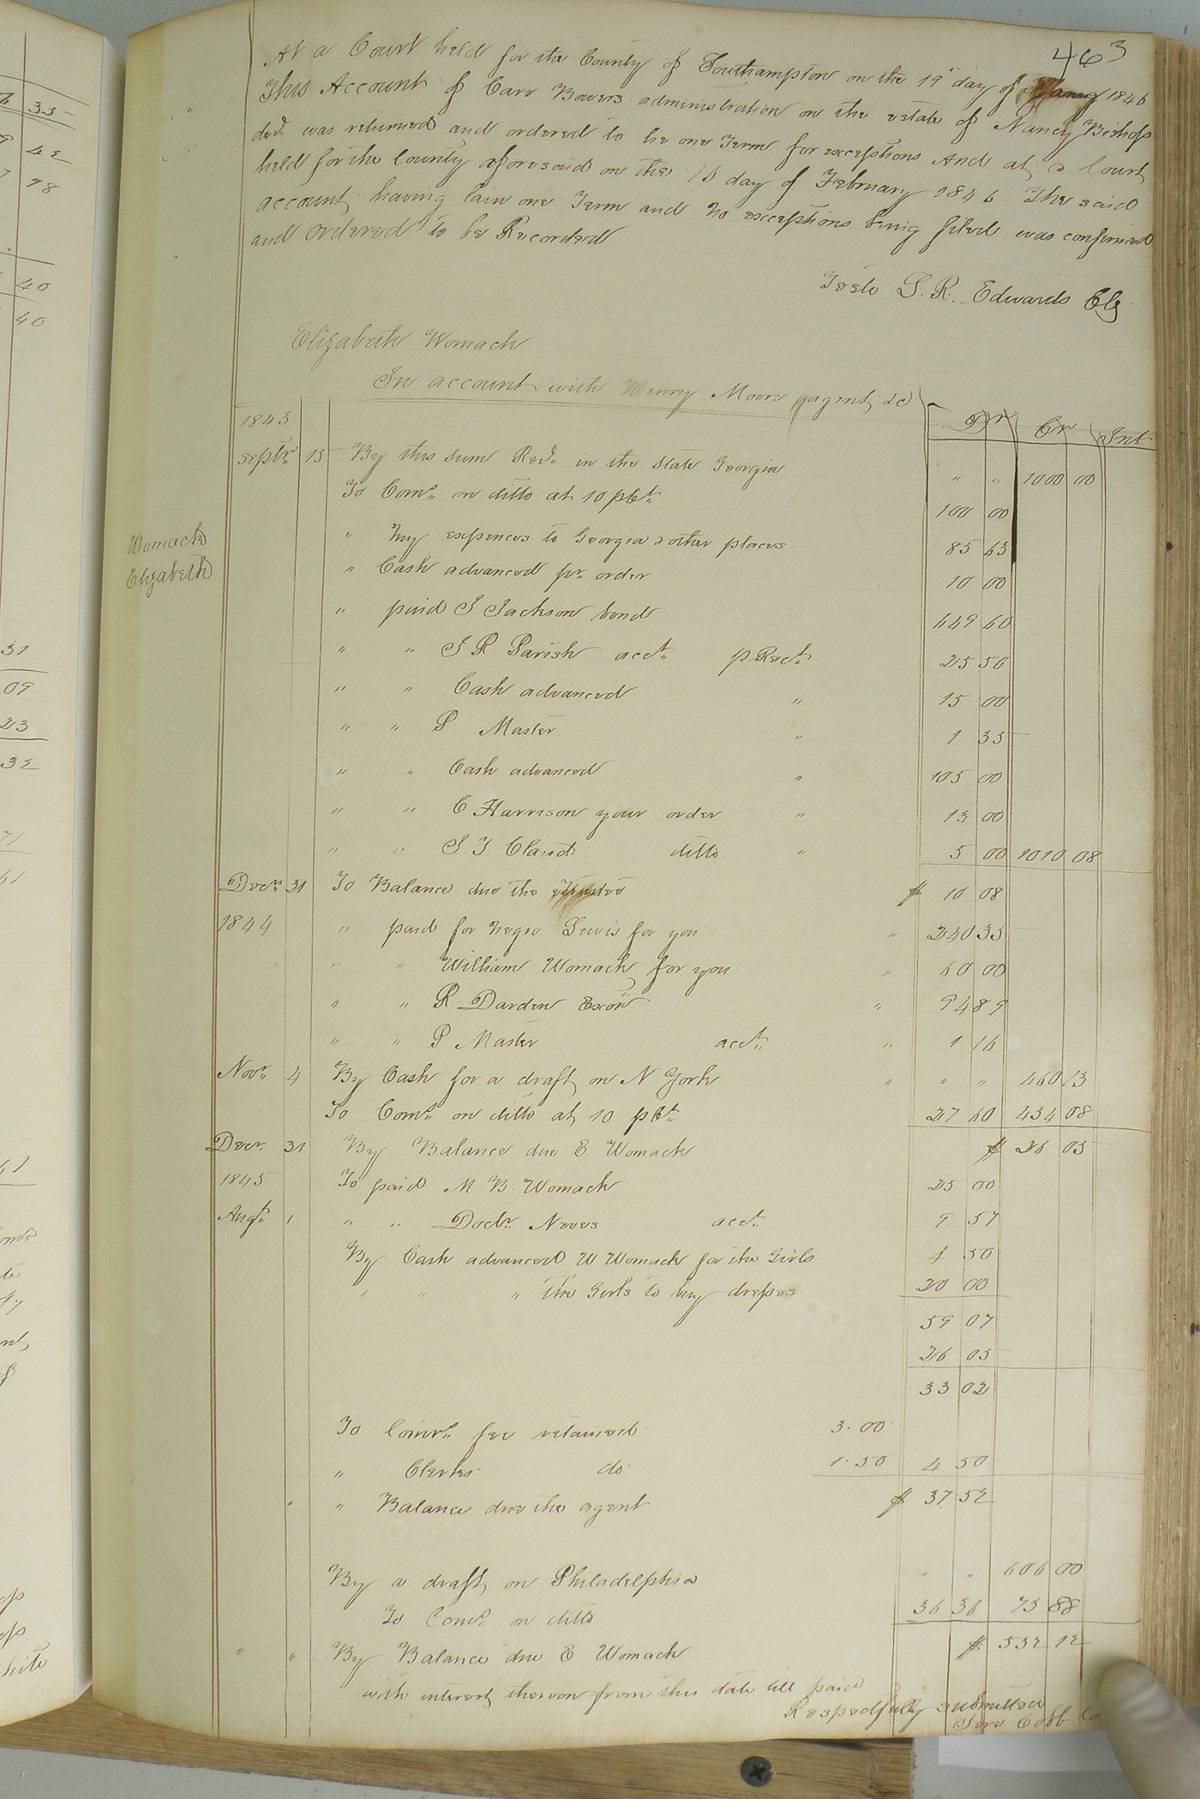 463
At a Court held for the County of Southampton on the 19th day of Jany 1846
This Account of Carr Bowers administration on the estate of Nancy Bishop
decd. was returned and ordered to lie one Term for exceptions And at a Court
held for the County aforesaid on the 16 day of February 1846 The said
account having lain one Term and no exceptions being filed was confirmed
and ordered to be Recorded
Teste L. R. Edwards Clk
Elizabeth Womack
In account with Henry Moore agent &c
1843 Dr Cr Int
Septr. 15 By this sum Recd. in the State Georgia " " 1000 00
To Coms. on ditto at 10 pCt. 100 00
Womack
Elizabeth
" my expences to Georgia & other places 85 63
" Cash advanced pr order 10 00
" paid J Jackson bond 649 60
" " J R Parish acct. pRect. 25 50
" " Cash advanced " 15 00
" " P Master " 1 35
" " Cash advanced " 105 00
" " C Harrison your order " 13 00
" " J T Claud ditto " 5 00 1010 08
Decr. 31 To Balance due the Trustee $ 10 08
1844 " paid for negro Lewis for you " 240 35
" " William Womack for you " 60 00
" " R Darden Exor " 94 89
" " P Master acct. " 1 16
Novr. 4 By Cash for a draft on N York " " " 460 13
To Coms. on ditto at 10 pCt. 27 60 434 08
Decr. 31 By Balance due E Womack $ 26 05
1845 To paid M B Womack 25 00
Augt. 1 " " Doctr. Neves acct. 9 57
By Cash advanced W Womack for the Girls 4 50
" " " the Girls to buy dresses 20 00
59 07
26 05
33 02
To Comrs. fee retained 3.00
" Clerks do 1.50 4 50
" " Balance due the agent $ 37 52
By a draft on Philadelphia " " 606 00
To Coms. on ditto 36 36 73 88
" " By Balance due E Womack $ 532 12
with interest thereon from this date till paid
Respectfully submitted
Jere Cobb